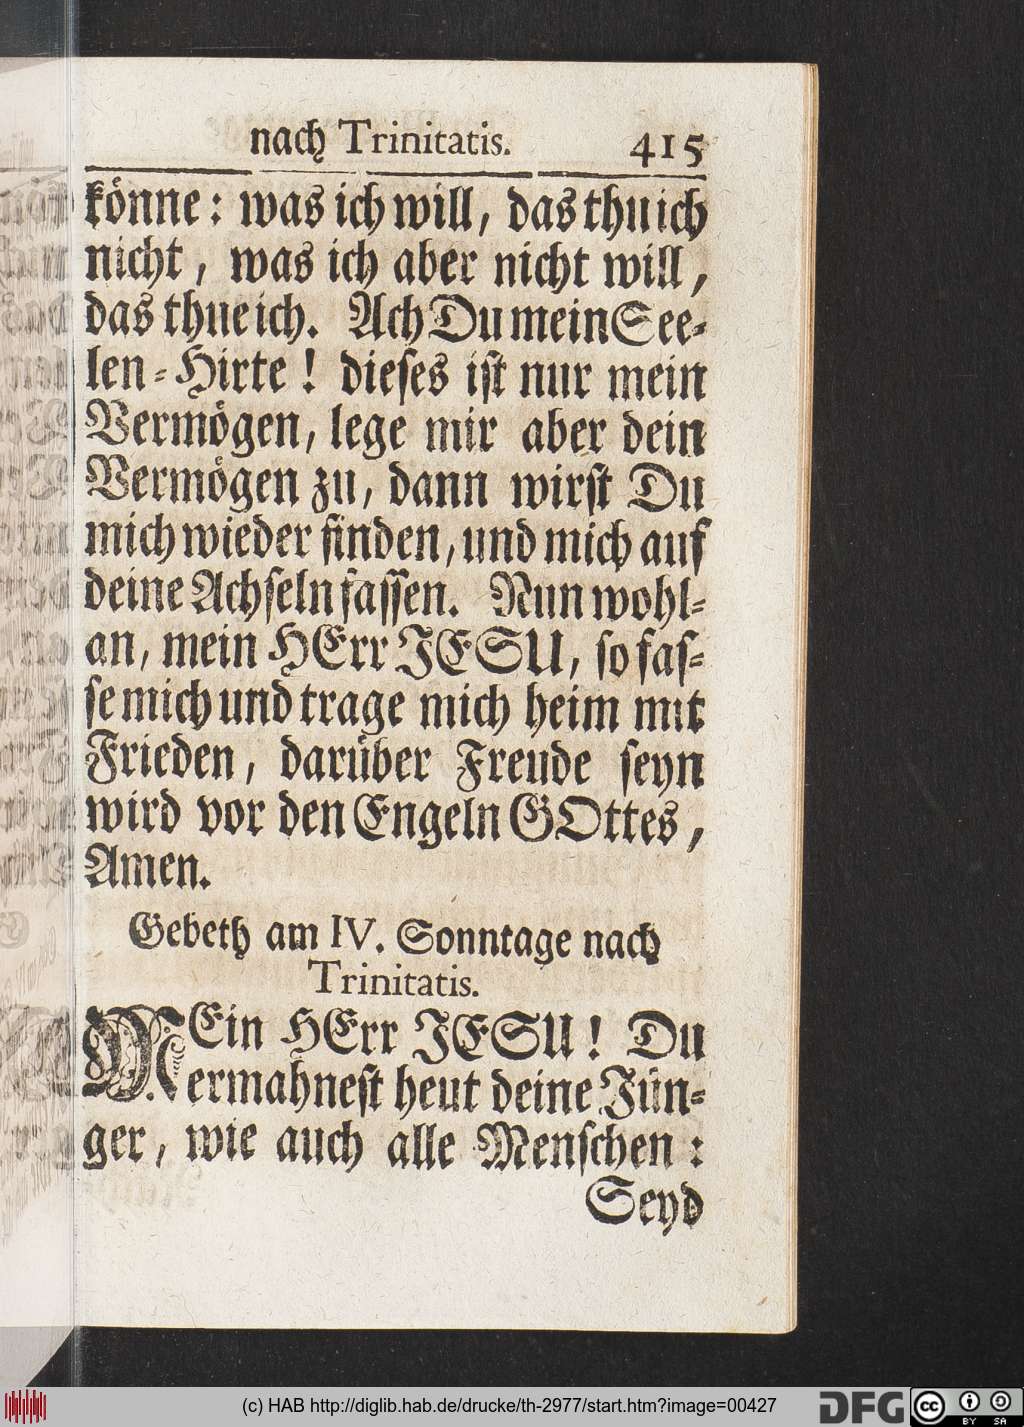 nach Trinitatis. 415
könne: was ich will, das thu ich
nicht, was ich aber nicht will,
das thue ich. Ach Du mein See-
len-Hirte! dieses ist nur mein
Vermögen, lege mir aber dein
Vermögen zu, dann wirst Du
mich wieder finden, und mich auf
deine Achseln fassen. Nun wohl-
an, mein HErr JESU, so fas-
se mich und trage mich heim mit
Frieden, darüber Freude seyn
wird vor den Engeln GOttes,
Amen.
Gebeth am IV. Sonntage nach
Trinitatis.
MEin HErr JESU! Du
ermahnest heut deine Jün-
ger, wie auch alle Menschen:
Seyd
(c) HAB http://diglib.hab.de/drucke/th-2977/start.htm?image=00427
DFG
cc BY SA